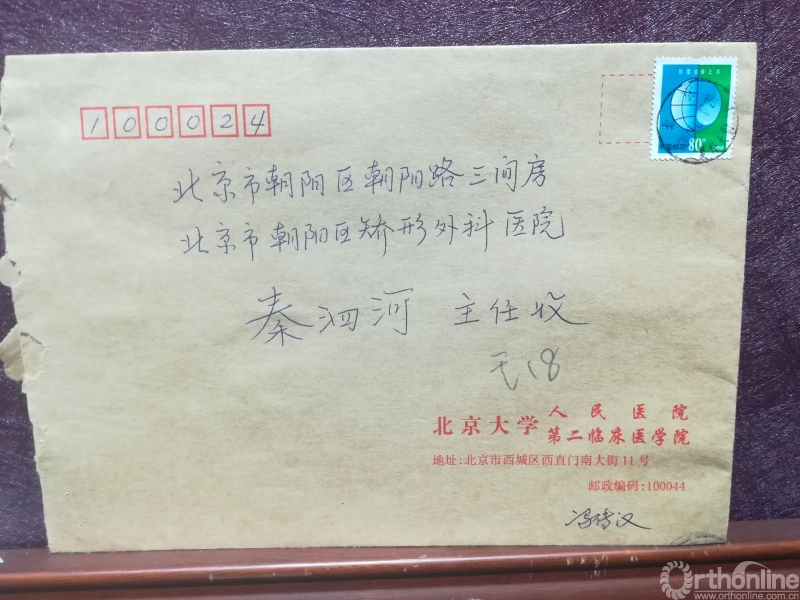 100024
80
北京市朝阳区朝阳路三间房
北京市朝阳区矫形外科医院
秦泗河 主任收
北京大学 人民医院
第二临床医学院
地址:北京市西城区西直门南大街11号
邮政编码:100044
冯传汉
Orthonline
www.orthonline.com.cn